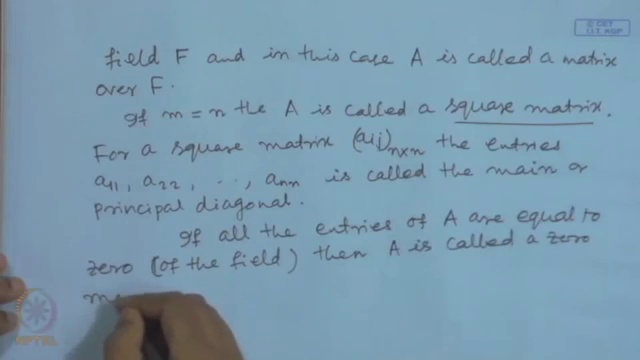 © CET
I.I.T. KGP
field F and in this case A is called a matrix
over F.
If m = n the A is called a square matrix.
For a square matrix (aij)n×n the entries
a11, a22, .., ann is called the main or
principal diagonal.
If all the entries of A are equal to
zero (of the field) then A is called a zero
m
NPTEL